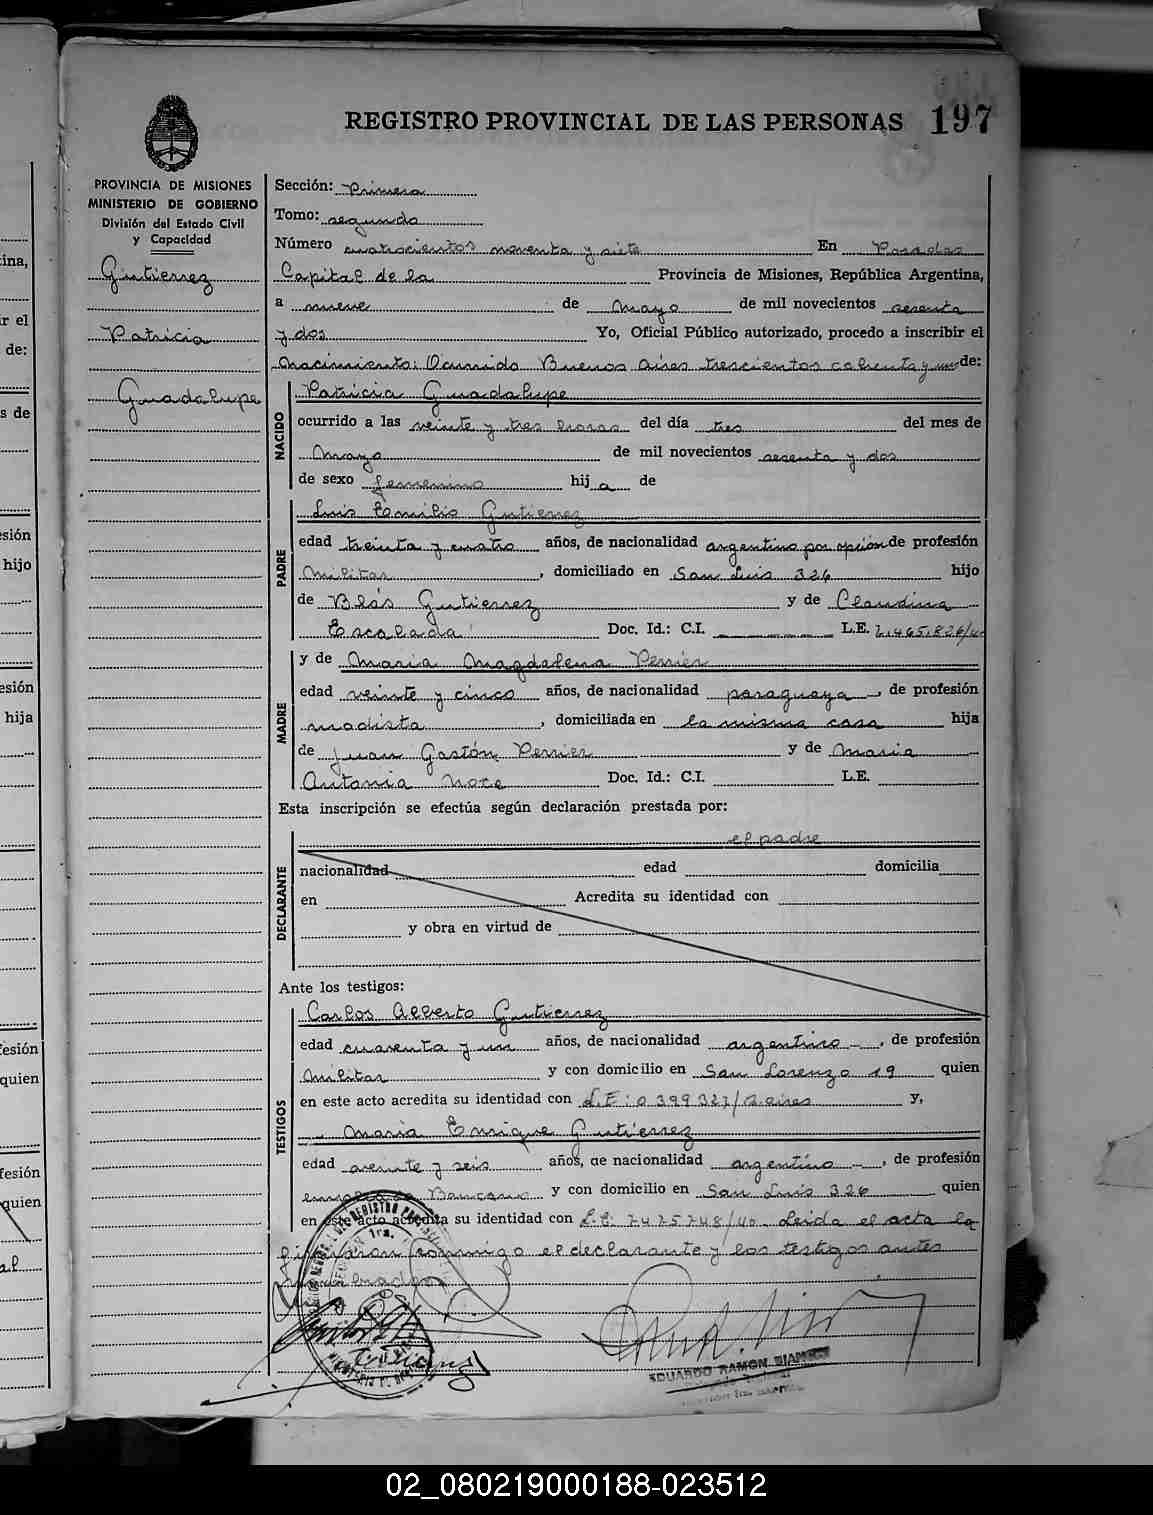 REGISTRO PROVINCIAL DE LAS PERSONAS 197
PROVINCIA DE MISIONES
MINISTERIO DE GOBIERNO
División del Estado Civil
y Capacidad
Gutierrez
Patricia
Guadalupe
Sección: Primera
Tomo: segundo
Número cuatrocientos noventa y siete En Posadas
Capital de la Provincia de Misiones, República Argentina,
a nueve de mayo de mil novecientos sesenta
y dos Yo, Oficial Público autorizado, procedo a inscribir el
nacimiento: Ocurrido Buenos Aires trescientos de:
NACIDO
Patricia Guadalupe
ocurrido a las veinte y tres horas del día tres del mes de
Mayo de mil novecientos sesenta y dos
de sexo femenino hija de
PADRE
Luis Emilio Gutierrez
edad treinta y cuatro años, de nacionalidad argentino por opción de profesión
Militar, domiciliado en San Luis 326 hijo
de Blás Gutierrez y de Claudina
Escalada Doc. Id.: C.I. L.E.
MADRE
y de Maria Magdalena Perrier
edad veinte y cinco años, de nacionalidad paraguaya, de profesión
modista, domiciliada en la misma casa hija
de Juan Gastón Perrier y de Maria
Antonia Doc. Id.: C.I. L.E.
Esta inscripción se efectúa según declaración prestada por:
DECLARANTE
el padre
nacionalidad edad domicilia
en Acredita su identidad con
y obra en virtud de
Ante los testigos:
TESTIGOS
Carlos Alberto Gutierrez
edad cuarenta y un años, de nacionalidad argentino -, de profesión
Militar y con domicilio en San Lorenzo 19 quien
en este acto acredita su identidad con L.E: 0 399 327/B. aires y,
Mario Enrique Gutiérrez
edad veinte y seis años, de nacionalidad argentino -, de profesión
empleado Bancario y con domicilio en San Luis 326 quien
en este acto acredita su identidad con L.E: 7475748/40. Leida el acta la
firmaron conmigo el declarante y los testigos antes
nombrados
EDUARDO RAMON
02_080219000188-023512